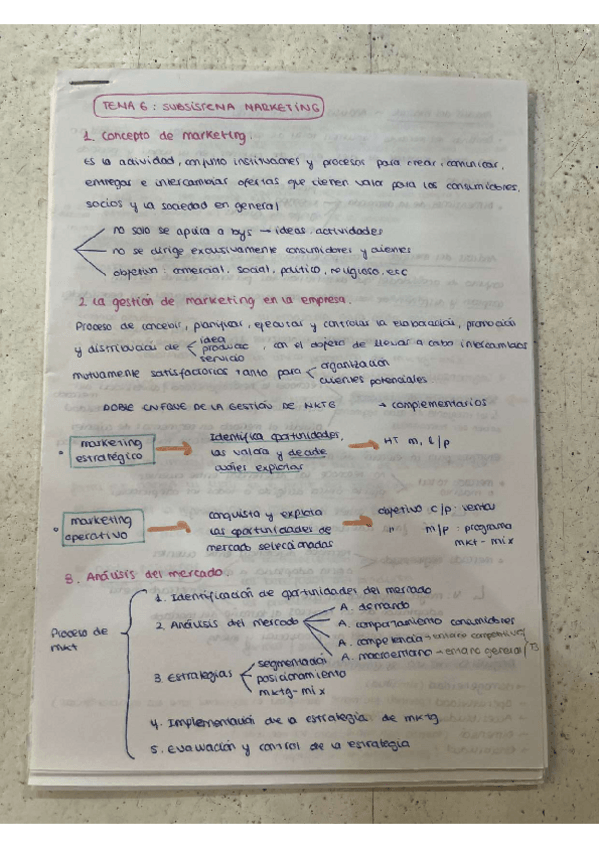 TEMA 6: SUBSISTEMA MARKETING
1. Concepto de marketing.
Es la actividad, conjunto instituciones y procesos para crear, comunicar,
entregar e intercambiar ofertas que tienen valor para los consumidores,
socios y la sociedad en general
no solo se aplica a bys → ideas, actividades
no se dirige exclusivamente consumidores y clientes
objetivo: comercial, social, político, religioso, etc
2. La gestión de marketing en la empresa.
Proceso de concebir, planificar, ejecutar y controlar la elaboración, promoción
y distribución de < idea, con el objeto de llevar a cabo intercambios
produc
servicio
mutuamente satisfactorios tanto para < organización
clientes potenciales
DOBLE ENFOQUE DE LA GESTIÓN DE MKTG → complementarios
marketing estratégico → Identifica oportunidades, las valora y decide cuáles explotar → HT m, l/p
marketing operativo → conquista y explota las oportunidades de mercado seleccionadas → objetivo c/p: ventas
" m/p: programa mkt-mix
3. Análisis del mercado.
Proceso de mkt
1. Identificación de oportunidades del mercado
2. Análisis del mercado
A. demanda
A. comportamiento consumidores
A. competencia → entorno competitivo
A. macroentorno → entorno general
3. Estrategias
segmentación
posicionamiento
mktg-mix
4. Implementación de la estrategia de mktg
5. Evaluación y control de la estrategia